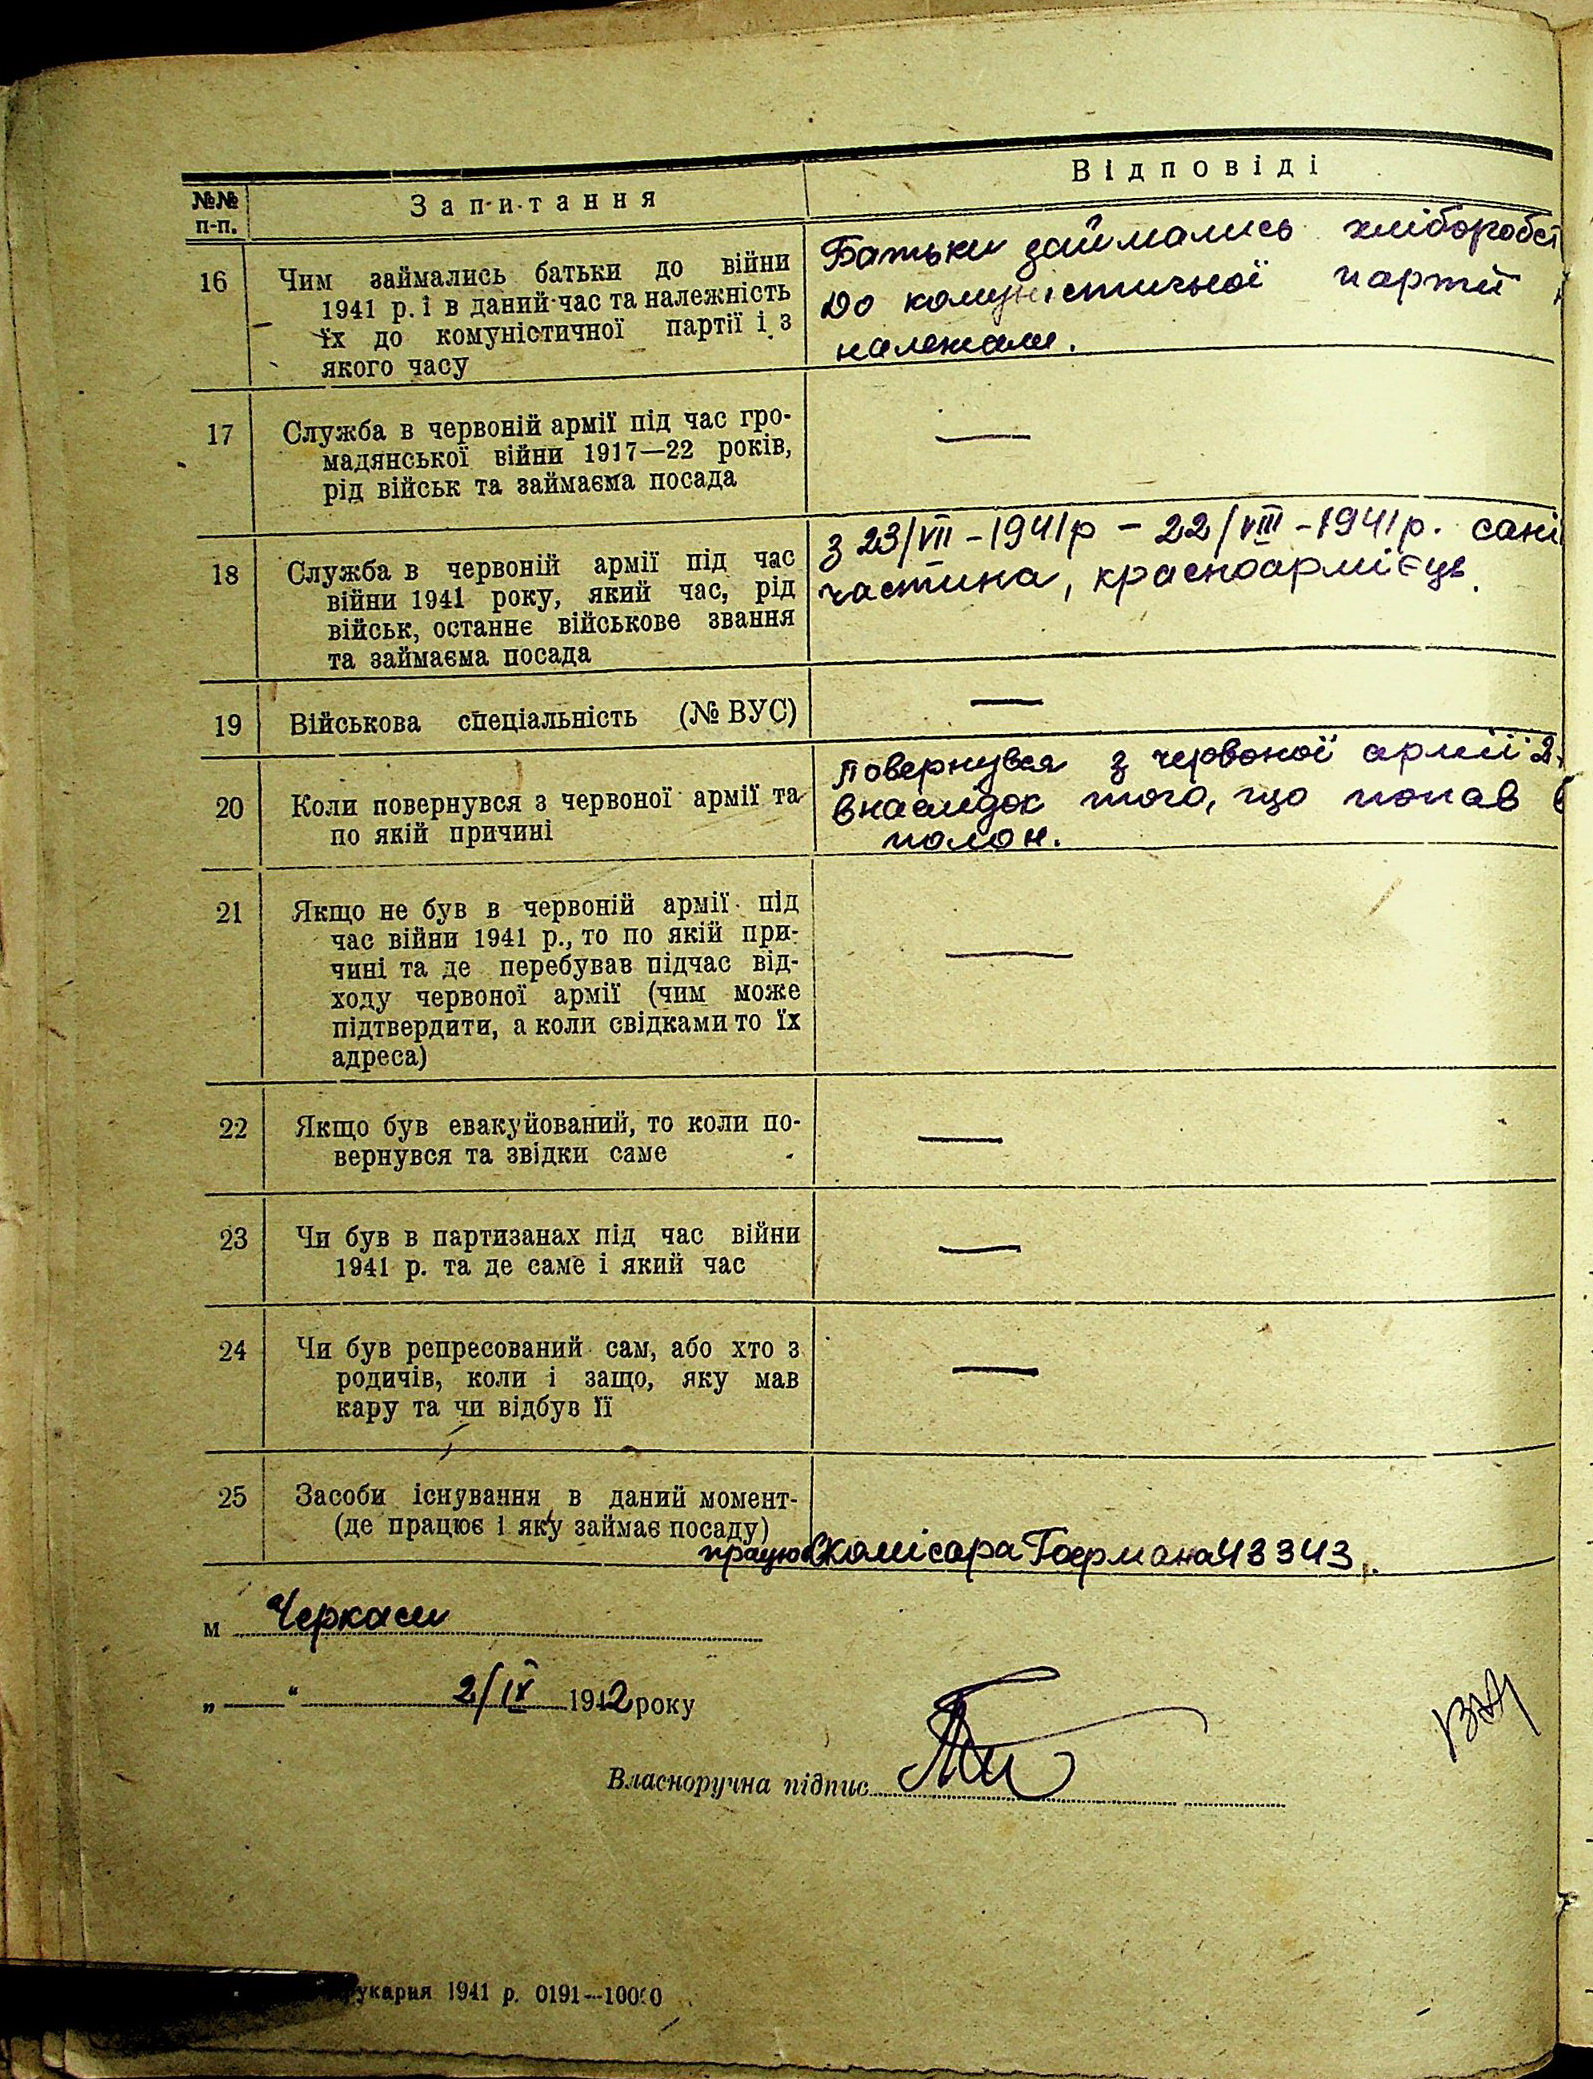 №№ п-п.
Запитання
Відповіді
16
Чим займались батьки до війни
1941 р. і в даний час та належність
їх до комуністичної партії і з
якого часу
Батьки займались хліборобст
До комуністичної партії н
належали.
17
Служба в червоній армії під час гро-
мадянської війни 1917—22 років,
рід військ та займаєма посада
—
18
Служба в червоній армії під час
війни 1941 року, який час, рід
військ, останнє військове звання
та займаєма посада
з 23/VII - 1941 р — 22/VIII - 1941 р. сані
частина, красноармієць.
19
Військова спеціальність (№ ВУС)
—
20
Коли повернувся з червоної армії та
по якій причині
Повернувся з червоної армії 2
внаслідок того, що попав в
полон.
21
Якщо не був в червоній армії під
час війни 1941 р., то по якій при-
чині та де перебував підчас від-
ходу червоної армії (чим може
підтвердити, а коли свідками то їх
адреса)
—
22
Якщо був евакуйований, то коли по-
вернувся та звідки саме
—
23
Чи був в партизанах під час війни
1941 р. та де саме і який час
—
24
Чи був репресований сам, або хто з
родичів, коли і защо, яку мав
кару та чи відбув її
—
25
Засоби існування в даний момент-
(де працює і яку займає посаду)
працюю комісара 43343.
м Черкаси
„ — “ 2/IX 1942 року
Власноручна підпис
укарня 1941 р. 0191—10000